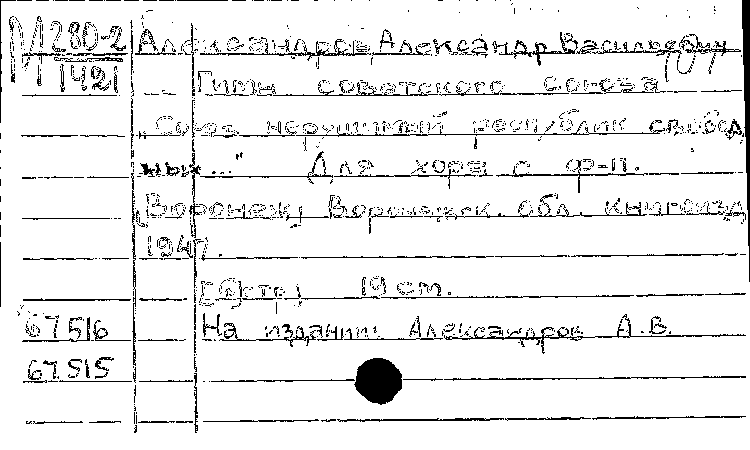 М 280-2 Александров, Александр Васильевич
1421 Гимн советского союза
„Союз нерушимый республик свобод
ных..." Для хора с ф-п.
[Воронеж] Воронежск. обл. книгоизд
1947.
[2]стр] 19 см.
67516 На издании: Александров А.В.
67515